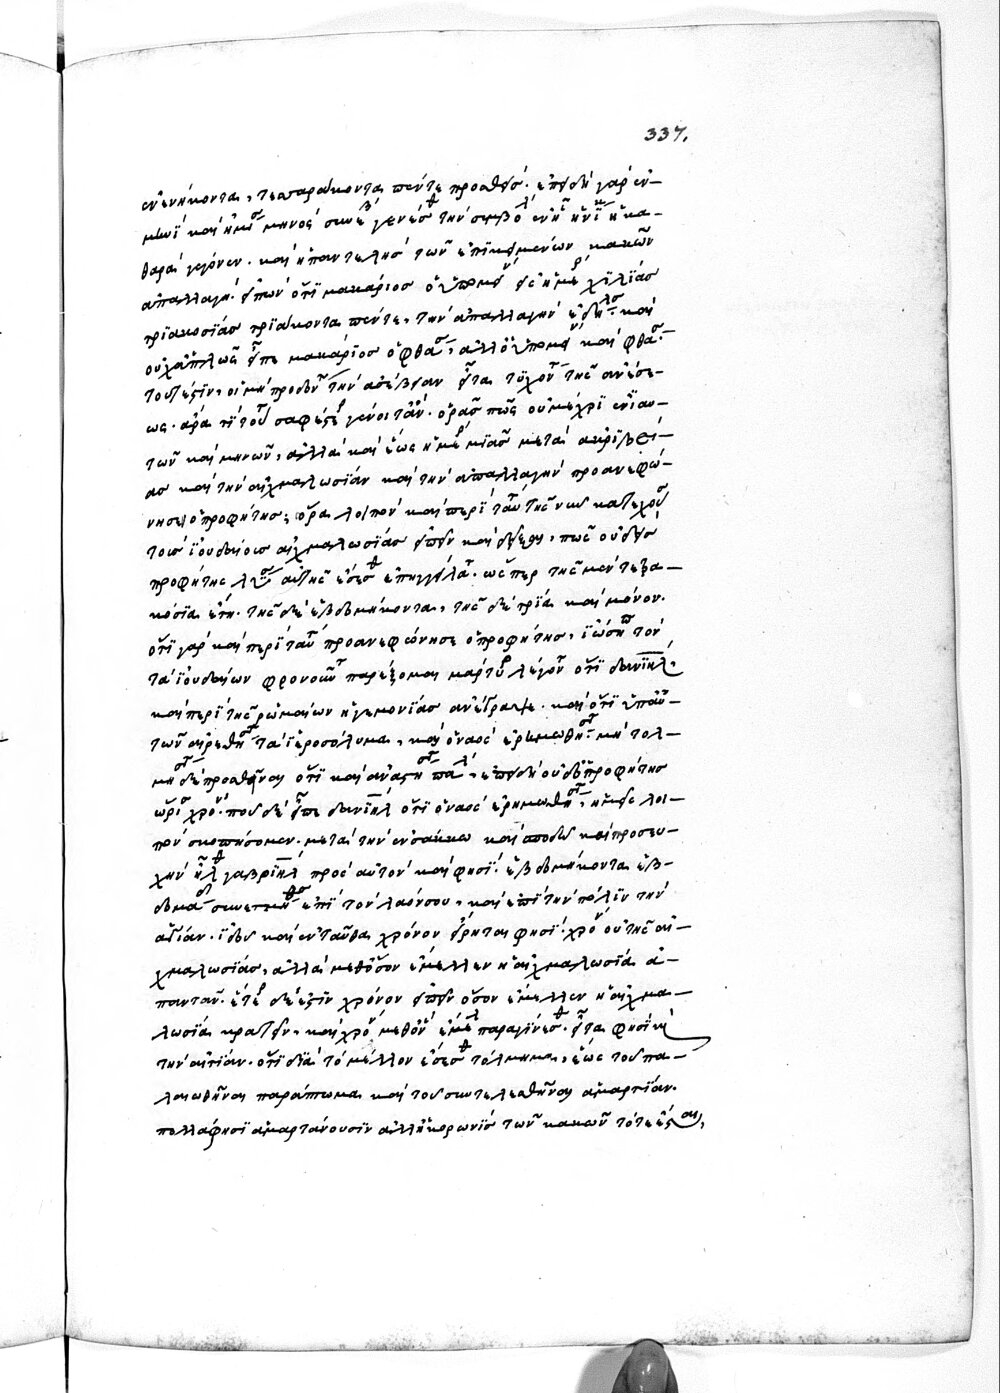 337.
ἐνενήκοντα, τεσσαράκοντα πέντε προσθείς. ἐπειδὴ γὰρ ἐν
μηνὶ καὶ ἡμίσει μηνὸς συνέβη γενέσθαι τὴν συμβολὴν ἐν ᾗ ἡ νίκη ἡ κα-
θαρὰ γέγονεν. καὶ ἡ παντελὴς τῶν ἐπικειμένων κακῶν
ἀπαλλαγή. εἰπὼν ὅτι μακάριος ὁ ὑπομείνας εἰς ἡμέρας χιλίας
τριακοσίας τριάκοντα πέντε, τὴν ἀπαλλαγὴν ἐδήλωσε. καὶ
οὐχ ἁπλῶς εἶπε μακάριος ὁ φθάσας, ἀλλ' ὁ ὑπομείνας καὶ φθάσας.
τουτέστιν, οἱ μὴ προδόντες τὴν ἀσέβειαν εἶτα τυχόντες τῆς ἀνέσε-
ως. ἆρα τί τούτου σαφέστερον γένοιτ' ἄν. ὁρᾷς πῶς οὐ μέχρι ἐνιαυ-
τῶν καὶ μηνῶν, ἀλλὰ καὶ ἕως ἡμέρας μιᾶς μετὰ ἀκριβεί-
ας καὶ τὴν αἰχμαλωσίαν καὶ τὴν ἀπαλλαγὴν προανεφώ-
νησεν ὁ προφήτης; ὅρα λοιπὸν καὶ περὶ ταύτης τῆς νῦν κατεχούσης
τοὺς ἰουδαίους αἰχμαλωσίας εἰπεῖν καὶ δεῖξαι, πῶς οὐδεὶς
προφήτης λύσιν αὐτῆς ἔσεσθαι ἐπηγγείλατο. ὥσπερ τῆς μὲν τετρα-
κόσια ἔτη. τῆς δὲ ἑβδομήκοντα, τῆς δὲ τρία καὶ μόνον.
ὅτι γὰρ καὶ περὶ ταύτης προανεφώνησε ὁ προφήτης, ἰώσηπον τὸν
τὰ ἰουδαίων φρονοῦντα παρέξομαι μάρτυρα λέγοντα ὅτι δανιὴλ
καὶ περὶ τῆς ῥωμαίων ἡγεμονίας ἀνέγραψε. καὶ ὅτι ὑπ' αὐ-
τῶν αἱρεθήσεται τὰ ἱεροσόλυμα, καὶ ὁ ναὸς ἐρημωθήσεται. μὴ τολ-
μήσας δὲ προσθεῖναι ὅτι καὶ ἀναστήσεται πάλιν, ἐπειδὴ οὐδ' ὁ προφήτης
ὥρισε χρόνον. ποῦ δὲ εἶπε δανιὴλ ὅτι ὁ ναὸς ἐρημωθήσεται, ἡμεῖς λοι-
πὸν σκοπήσομεν. μετὰ τὴν ἐν σάκκῳ καὶ σποδῷ καὶ προσευ-
χὴν ἦλθε γαβριὴλ πρὸς αὐτὸν καί φησι. ἑβδομήκοντα ἑβ-
δομάδες συνετμήθησαν ἐπὶ τὸν λαόν σου, καὶ ἐπὶ τὴν πόλιν τὴν
ἁγίαν. ἰδοὺ καὶ ἐνταῦθα χρόνον εἴρηται φησί. χρόνος οὐ τῆς αἰ-
χμαλωσίας, ἀλλὰ μεθ' ὅσον ἔμελλεν ἡ αἰχμαλωσία ἀ-
παντᾶν. ἕτερον δέ ἐστιν χρόνον εἰπεῖν ὅσον ἔμελλεν ἡ αἰχμα-
λωσία κρατεῖν, καὶ χρόνον μεθ' ὃν ἔμελλε παραγίνεσθαι. εἶτα φησὶ καὶ
τὴν αἰτίαν. ὅτι διὰ τὸ μέλλον ἔσεσθαι τόλμημα, ἕως τοῦ πα-
λαιωθῆναι παράπτωμα καὶ τοῦ συντελεσθῆναι ἁμαρτίαν.
πολλά φησι ἁμαρτάνουσιν ἀλλ' ἡ κορωνὶς τῶν κακῶν τότε ἔσται,